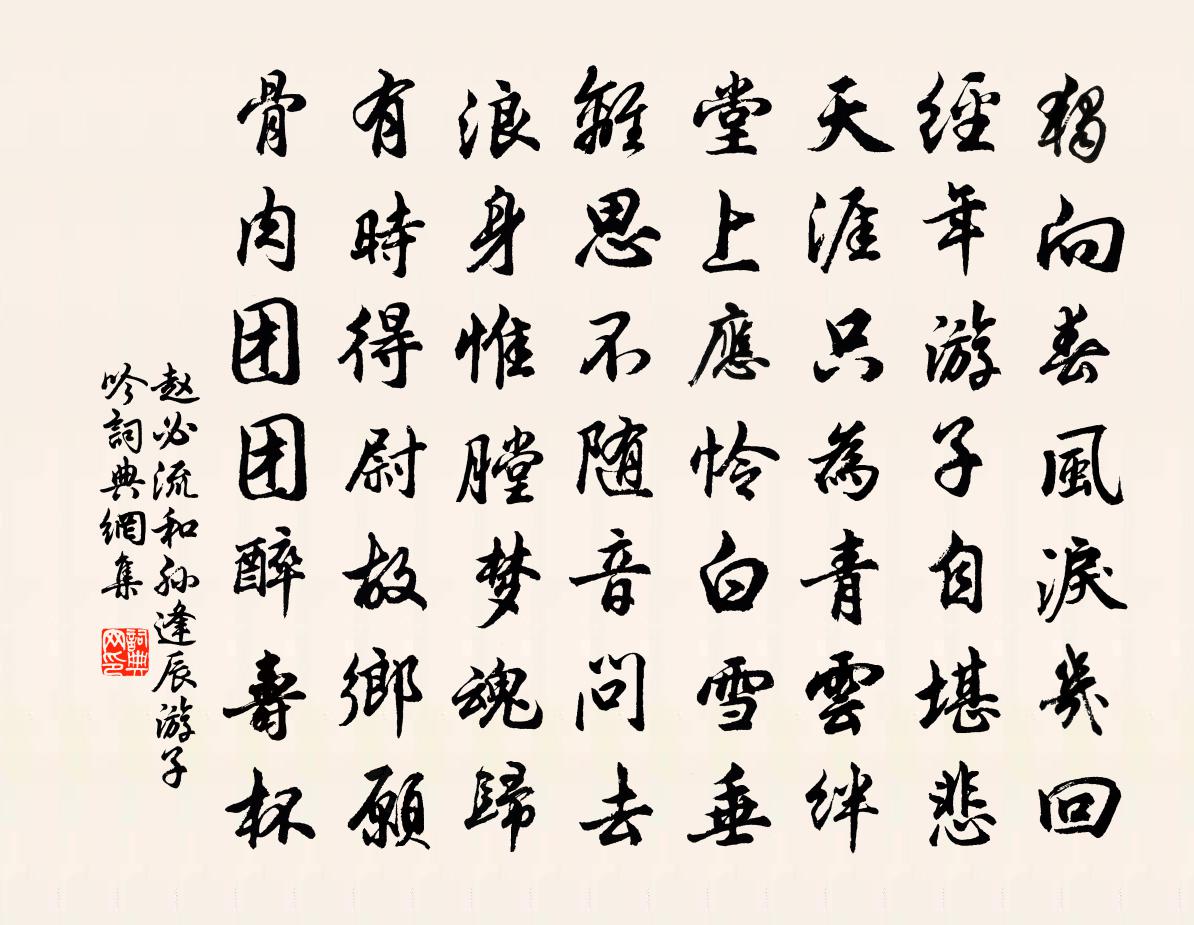 獨向春風淚幾回
經年游子自堪悲
天涯只為青雲絆
堂上應憐白雪垂
離思不随音問去
浪身惟膛梦魂歸
有時得尉故鄉願
骨肉团团醉壽杯
赵必流和孙逢辰游子
吟詞典網集
詞典
网印